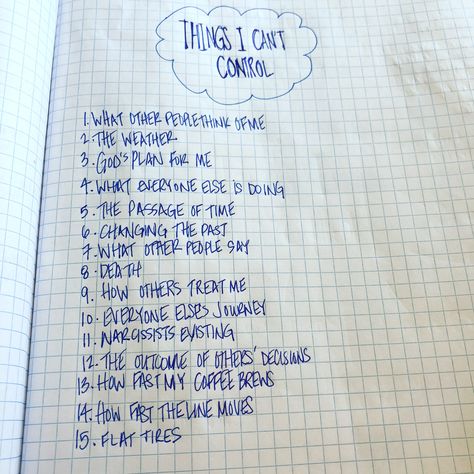 THINGS I CAN'T
CONTROL
1. WHAT OTHER PEOPLE THINK OF ME
2. THE WEATHER
3. GOD'S PLAN FOR ME
4. WHAT EVERYONE ELSE IS DOING
5. THE PASSAGE OF TIME
6. CHANGING THE PAST
7. WHAT OTHER PEOPLE SAY
8. DEATH
9. HOW OTHERS TREAT ME
10. EVERYONE ELSES JOURNEY
11. NARCISSISTS EXISTING
12. THE OUTCOME OF OTHERS' DECISIONS
13. HOW FAST MY COFFEE BREWS
14. HOW FAST THE LINE MOVES
15. FLAT TIRES